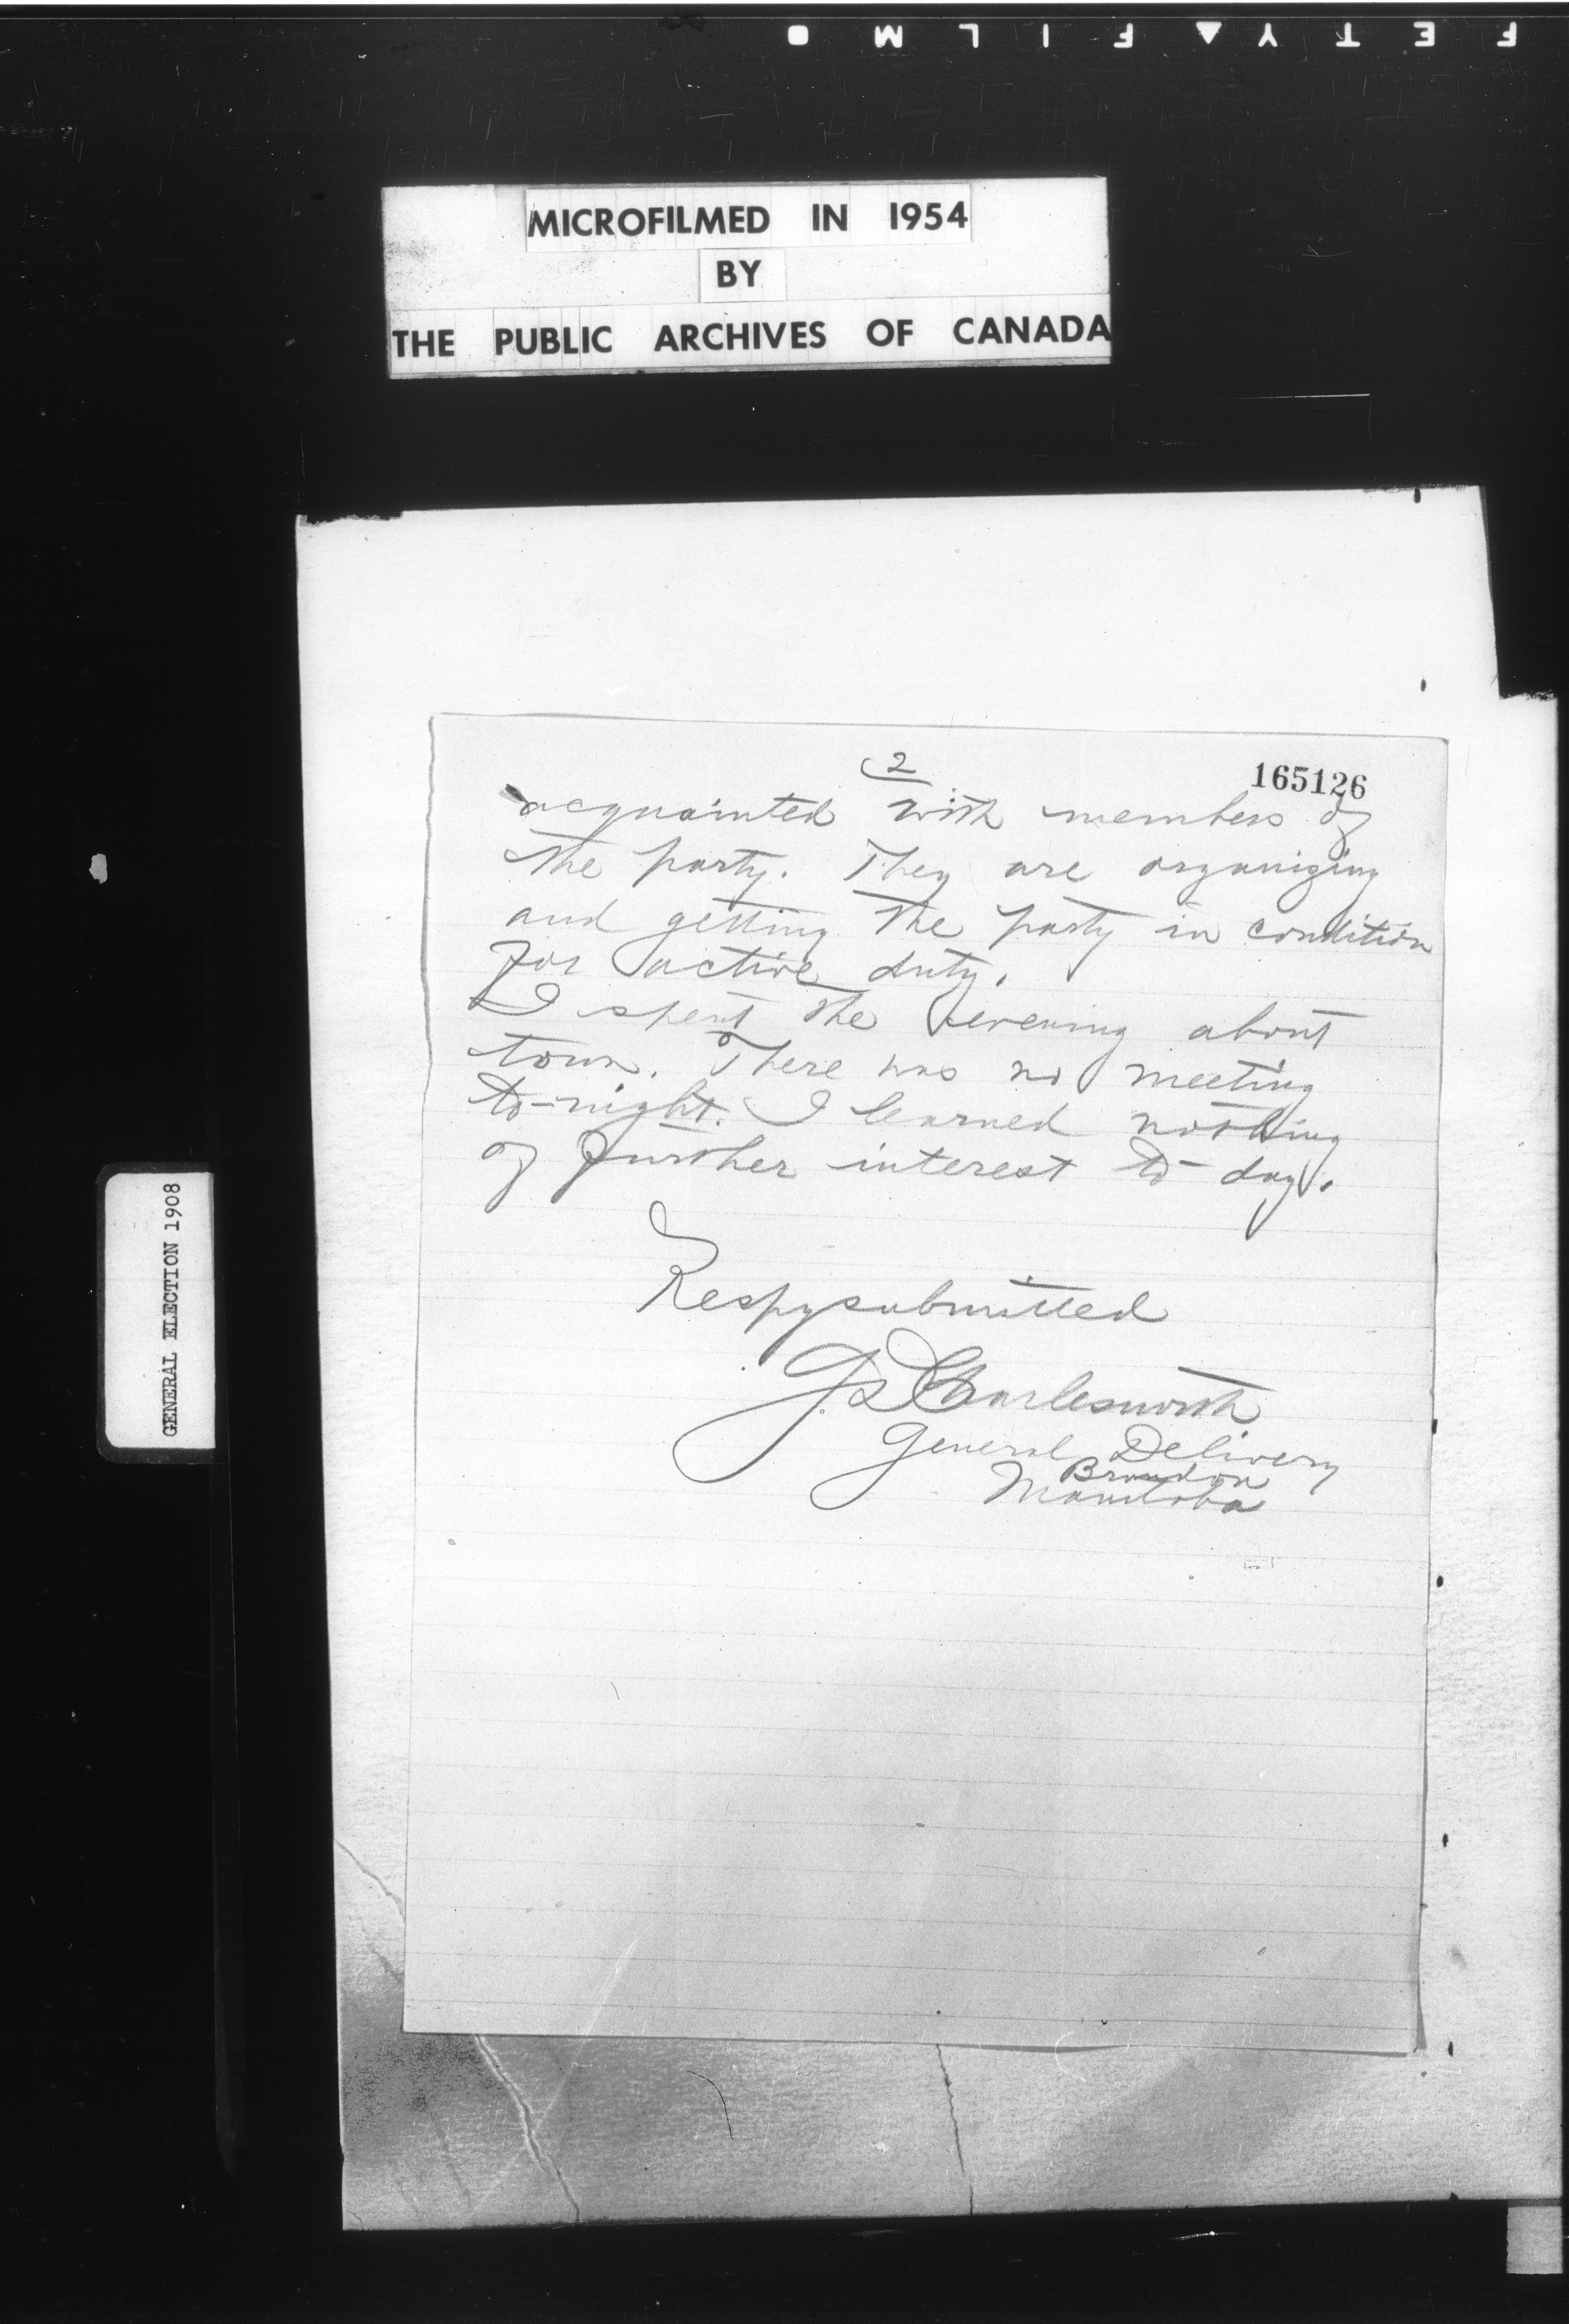 FETY▲FILM ●
MICROFILMED IN 1954
BY
THE PUBLIC ARCHIVES OF CANADA
2
165126
acquainted with members of
the party. They are organizing
and getting the party in condition
for active duty.
I spent the evening about
town. There was no meeting
to-night. I learned nothing
of further interest to-day.
Respy submitted
J.S. Charlesworth
General Delivery
Brandon
Manitoba
GENERAL ELECTION 1908